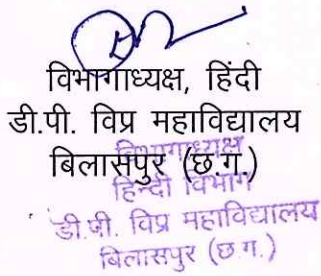 विभागाध्यक्ष, हिंदी
डी.पी. विप्र महाविद्यालय
बिलासपुर (छ.ग.)
विभागाध्यक्ष
हिन्दी विभाग
डी.पी. विप्र महाविद्यालय
बिलासपुर (छ.ग.)